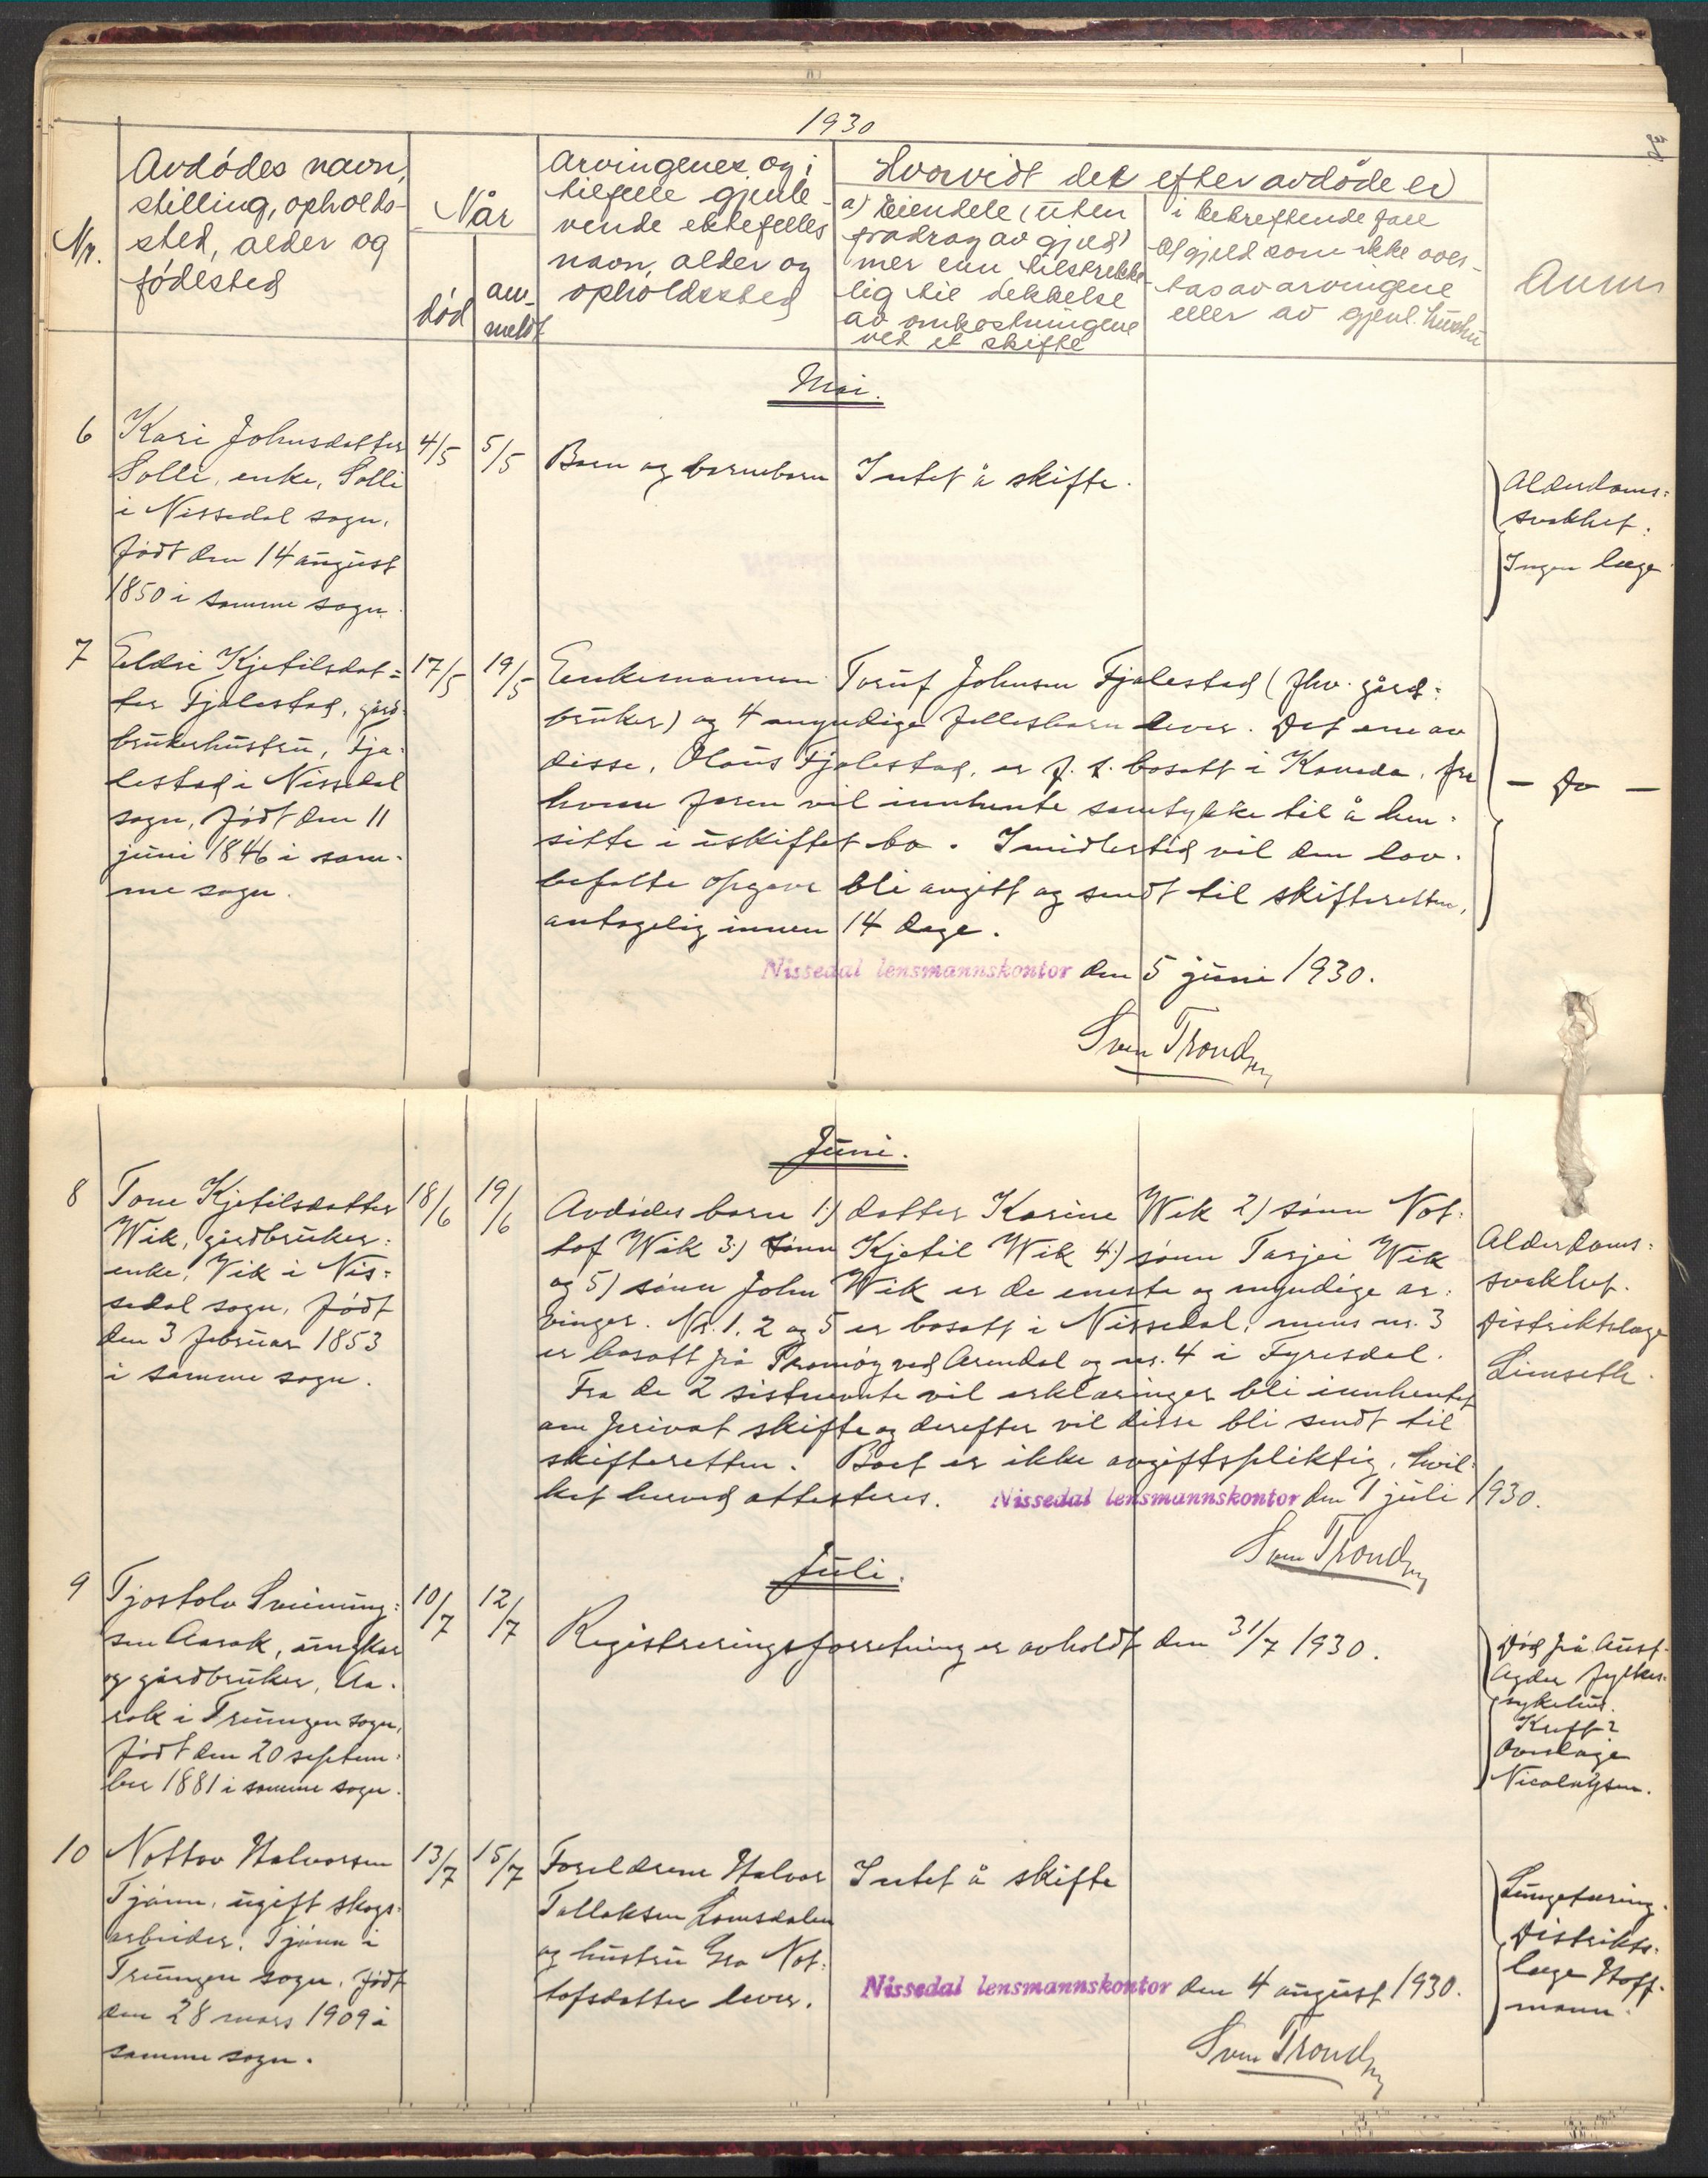 1930
Nr.
Avdödes navn,
stilling, opholds-
sted, alder og
födested
Når
död
an-
meldt
Arvingenes og i
tilfelle gjenle-
vende ektefelles
navn, alder og
opholdssted
Hvorvidt det efter avdöde er
a) Eiendele (uten
fradrag av gjeld)
mer enn tilstrekke-
lig til dekkelse
av omkostningene
ved et skifte
i bekreftende fall
b) gjeld som ikke over-
tas av arvingene
eller av gjenl. hustru
Anm
Mai.
6
Kari Johnsdatter
Solli, enke, Solli
i Nissedal sogn,
født den 14 august
1850 i samme sogn.
4/5
5/5
Barn og barnebarn
Intet å skifte.
Alderdoms=
svakhet.
Ingen læge
7
Eldri Kjetilsdat=
ter Fjalestad, gård=
brukerhustru, Fja=
lestad i Nissedal
sogn, født den 11
juni 1846 i sam=
me sogn.
17/5
19/5
Enkemannen Toruf Johnsen Fjalestad (fhv. gård=
bruker) og 4 myndige fellesbarn lever. Det ene av
disse, Olaus Fjalestad, er f. t. bosatt i Kanada, fra
hvem faren vil innhente samtykke til å hen=
sitte i uskiftet bo. Imidlertid vil den lov=
befalte opgave bli avgitt og sendt til skifteretten,
antagelig innen 14 dage.
— Do —
Nissedal lensmannskontor den 5 juni 1930.
Sven Trondsen
Juni.
8
Tone Kjetilsdatter
Wik, gårdbruker=
enke, Vik i Nis=
sedal sogn, født
den 3 februar 1853
i samme sogn.
18/6
19/6
Avdødes barn 1) datter Karine Wik 2) sønn Not=
tof Wik 3) sønn Kjetil Wik 4) sønn Tarjei Wik
og 5) sønn John Wik er de eneste og myndige ar=
vinger. Nr. 1, 2 og 5 er bosatt i Nissedal, mens nr. 3
er bosatt på Tromøy ved Arendal og nr. 4 i Fyresdal.
Fra de 2 sistnevnte vil erklæringer bli innhentet
om privat skifte og derefter vil disse bli sendt til
skifteretten. Boet er ikke avgiftspliktig, hvil=
ket herved attesteres. Nissedal lensmannskontor den 1 juli 1930.
Alderdoms=
svakhet.
Distriktslæge
Limseth.
Sven Trondsen
Juli.
9
Tjostolv Sveinung=
sen Aarak, ungkar
og gårdbruker, Aa=
rak i Treungen sogn,
født den 20 septem=
ber 1881 i samme sogn.
10/7
12/7
Registreringsforretning er avholdt den 31/7 1930.
Død på Aust-
Agder fylkes=
sykehus.
Kreft?
Overlæge
Nicolaysen.
10
Nottov Halvorsen
Tjønn, ugift skogs=
arbeider, Tjønn i
Treungen sogn, født
den 28 mars 1909 i
samme sogn.
13/7
15/7
Foreldrene Halvor
Tallaksen Lomsdalen
og hustru Gro Not=
tofsdatter lever.
Intet å skifte
Lungetæring.
Distrikts=
læge Hoff=
mann.
Nissedal lensmannskontor den 4 august 1930.
Sven Trondsen